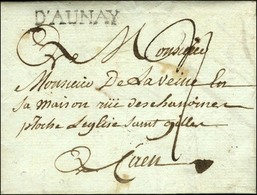 D'AUNAY
A Monsieur
Monsieur De La Veine En
sa maison rüe des chanoines
proche l'eglise saint gilles
A Caen